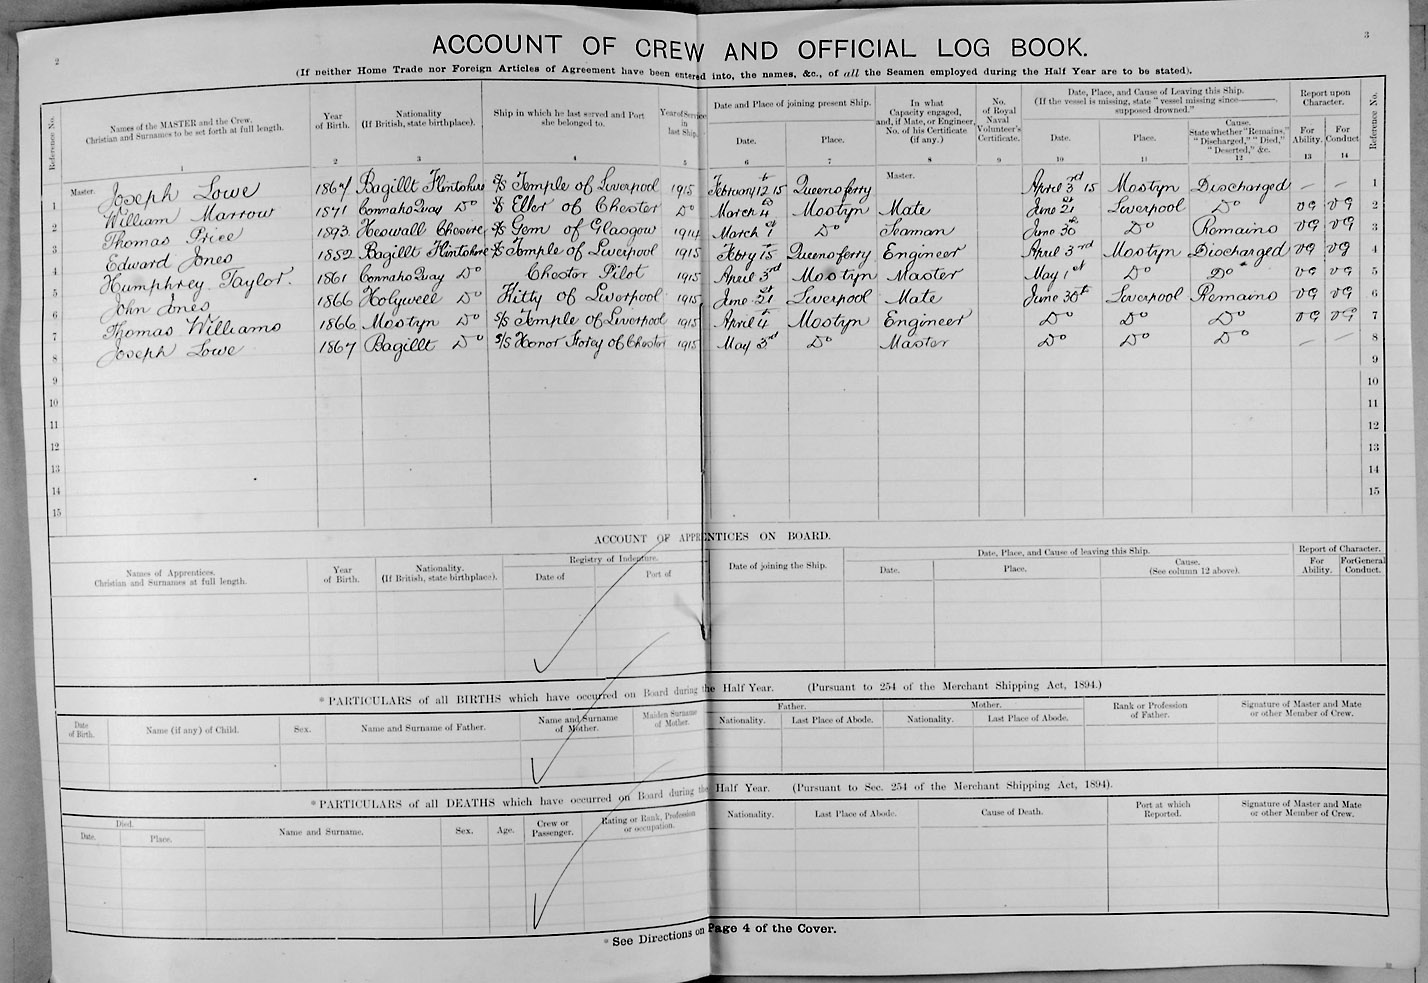 2
3
ACCOUNT OF CREW AND OFFICIAL LOG BOOK.
(If neither Home Trade nor Foreign Articles of Agreement have been entered into, the names, &c., of all the Seamen employed during the Half Year are to be stated).
Reference No. | Names of the MASTER and the Crew. Christian and Surnames to be set forth at full length. | Year of Birth. | Nationality (If British, state birthplace). | Ship in which he last served and Port she belonged to. | Year of Service in last Ship. | Date and Place of joining present Ship. | In what Capacity engaged, and, if Mate, or Engineer, No. of his Certificate (if any.) | No. of Royal Naval Volunteer's Certificate. | Date, Place, and Cause of Leaving this Ship. (If the vessel is missing, state "vessel missing since———, supposed drowned." | Report upon Character. | Reference No.
Date. | Place. | Date. | Place. | Cause. State whether "Remains," "Discharged," "Died," "Deserted," &c. | For Ability. | For Conduct
1 2 3 4 5 6 7 8 9 10 11 12 13 14
Master. Joseph Lowe 1867 Bagillt Flintshire S/S Temple of Liverpool 1915 February 12th 15 Queensferry Master. April 3rd 15 Mostyn Discharged — — 1
1 William Marrow 1871 Connahs Quay Do S/S Eller of Chester Do March 4th Mostyn Mate June 21st Liverpool Do VG VG 2
2 Thomas Price 1893 Heswall Cheshire S/S Gem of Glasgow 1914 March 1st Do Seaman June 30th Do Remains VG VG 3
3 Edward Jones 1852 Bagillt Flintshire S/S Temple of Liverpool 1915 Febry 15th Queensferry Engineer April 3rd Mostyn Discharged VG VG 4
4 Humphrey Taylor. 1861 Connahs Quay Do Chester Pilot 1915 April 3rd Mostyn Master May 1st Do Do VG VG 5
5 John Jones 1866 Holywell Do Kitty of Liverpool 1915 June 21st Liverpool Mate June 30th Liverpool Remains VG VG 6
6 Thomas Williams 1866 Mostyn Do S/S Temple of Liverpool 1915 April 4th Mostyn Engineer Do Do Do VG VG 7
7 Joseph Lowe 1867 Bagillt Do S/S Honor Storey of Chester 1915 May 3rd Do Master Do Do Do — — 8
8 9
9 10
10 11
11 12
12 13
13 14
14 15
15
ACCOUNT OF APPRENTICES ON BOARD.
Names of Apprentices. Christian and Surnames at full length. | Year of Birth. | Nationality. (If British, state birthplace). | Registry of Indenture. | Date of joining the Ship. | Date, Place, and Cause of leaving this Ship. | Report of Character.
Date of | Port of | Date. | Place. | Cause. (See column 12 above). | For Ability. | For General Conduct.
*PARTICULARS of all BIRTHS which have occurred on Board during the Half Year. (Pursuant to 254 of the Merchant Shipping Act, 1894.)
Date of Birth. | Name (if any) of Child. | Sex. | Name and Surname of Father. | Name and Surname of Mother. | Maiden Surname of Mother. | Father. | Mother. | Rank or Profession of Father. | Signature of Master and Mate or other Member of Crew.
Nationality. | Last Place of Abode. | Nationality. | Last Place of Abode.
*PARTICULARS of all DEATHS which have occurred on Board during the Half Year. (Pursuant to Sec. 254 of the Merchant Shipping Act, 1894).
Died. | Name and Surname. | Sex. | Age. | Crew or Passenger. | Rating or Rank, Profession or occupation. | Nationality. | Last Place of Abode. | Cause of Death. | Port at which Reported. | Signature of Master and Mate or other Member of Crew.
Date. | Place.
* See Directions on Page 4 of the Cover.